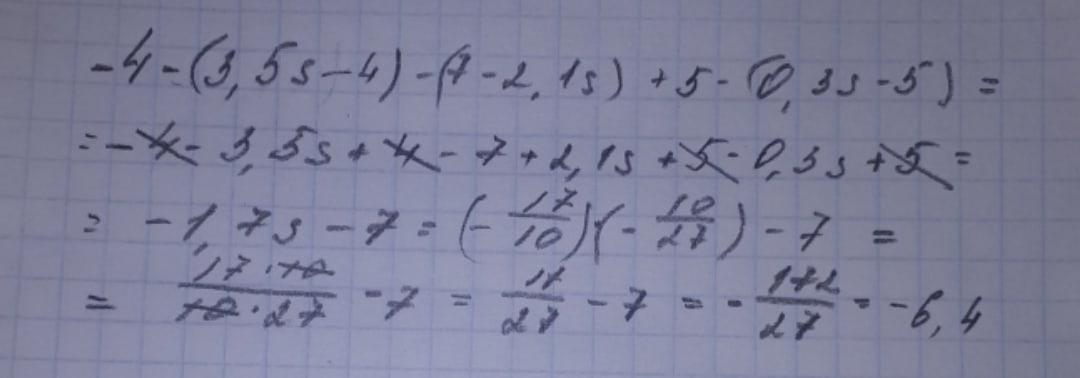 -4-(3,5s-4)-(7-2,1s)+5-(0,3s-5)=
=-4-3,5s+4-7+2,1s+5-0,3s+5=
= -1,7s-7=(-17/10)·(-10/27)-7 =
= 17·10/10·27 -7 = 17/27 -7 = -172/27 = -6,4